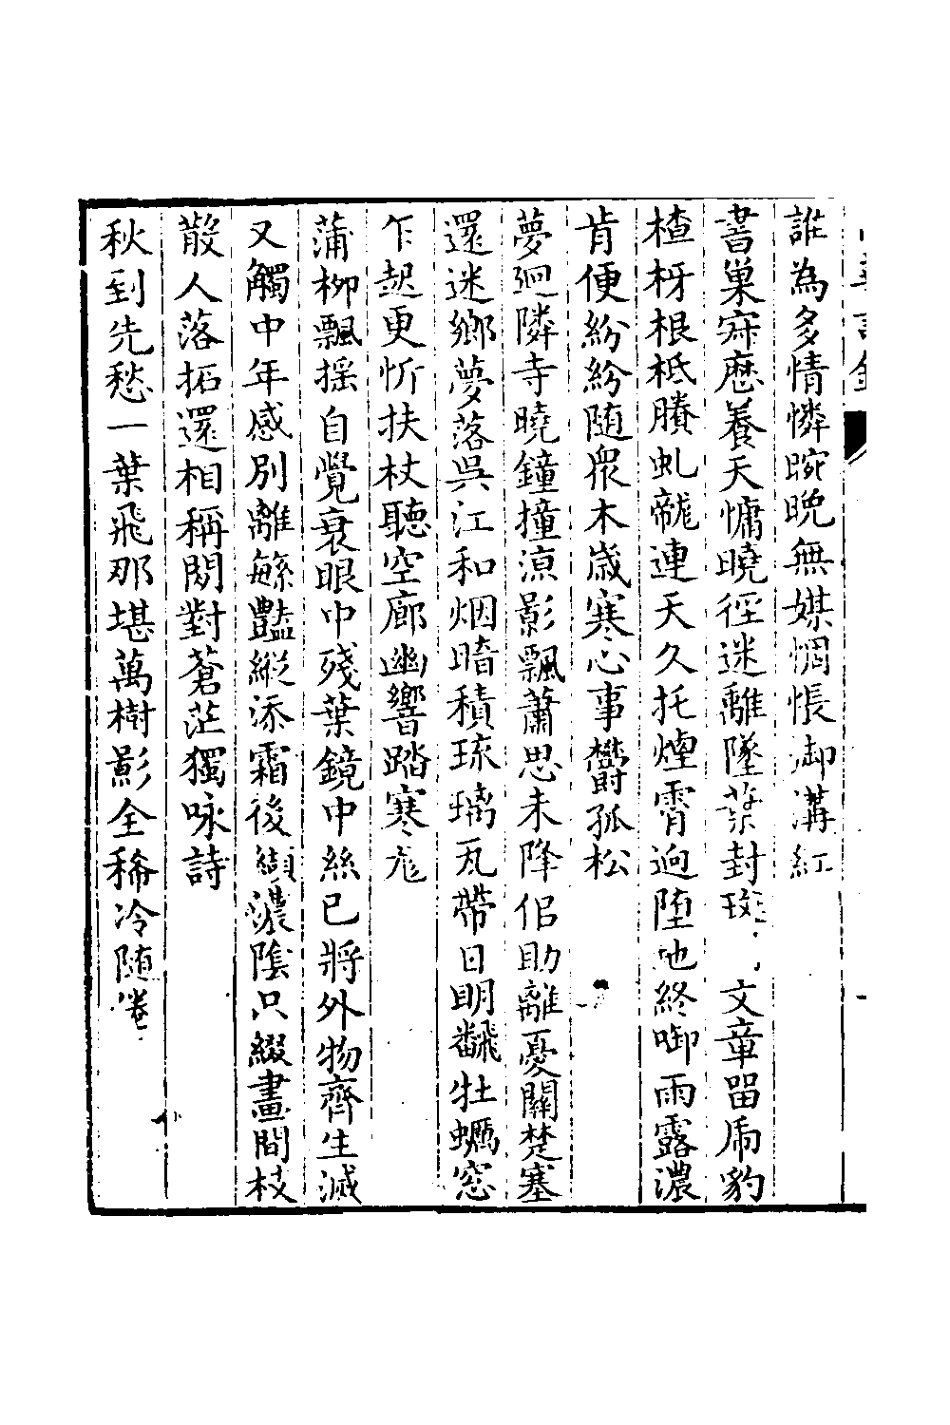 誰為多情憐晼晚無媒惆悵御溝紅
書巢寂歷養天慵曉徑迷離墜葉封斑文章留虎豹
楂枒根柢賸虬龍連天久托煙霄逈墮地終啣雨露濃
肯便紛紛随衆木歲寒心事欝孤松
夢廻隣寺曉鐘撞涼影飄蕭思未降侶助離憂關楚塞
還迷鄉夢落吳江和烟暗積琭璃瓦帶日明飜牡蠣窓
乍起更忻扶杖聽空廊幽響踏寒尨
蒲柳飄揺自覺衰眼中殘葉鏡中絲已將外物齊生滅
又觸中年感別離䋣豔縱添霜後纈濃陰只綴畫間枝
散人落拓還相稱閒對蒼茫獨咏詩
秋到先愁一葉飛那堪萬樹影全稀冷随